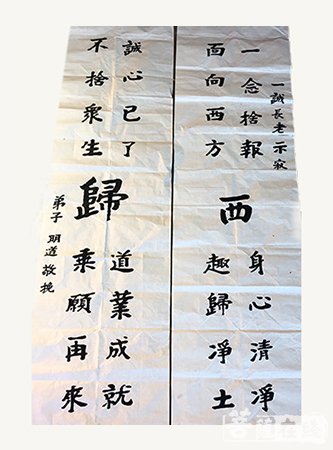 一誠長老示寂
一念捨報
面向西方
西
身心清淨
趣歸淨土
誠心已了
不捨衆生
歸
道業成就
乘願再來
弟子 明道 敬挽
在线